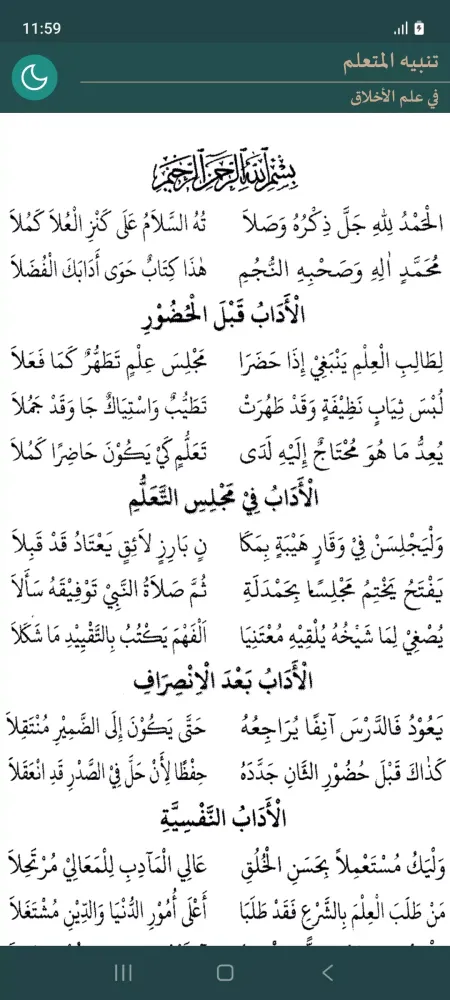 11:59
تنبيه المتعلم
في علم الأخلاق
بِسْمِ اللهِ الرَّحْمَنِ الرَّحِيْمِ
الْحَمْدُ لِلهِ جَلَّ ذِكْرُهُ وَصَلاَ تُهُ السَّلاَمُ عَلَى كَنْزِ الْعُلاَ كَمُلاَ
مُحَمَّدٍ اٰلِهِ وَصَحْبِهِ النُّجُمِ هٰذَا كِتَابٌ حَوَى أَدَابَكَ الْفُضَلاَ
الْأَدَابُ قَبْلَ الْحُضُوْرِ
لِطَالِبِ الْعِلْمِ يَنْبَغِيْ إِذَا حَضَرَا مَجْلِسَ عِلْمٍ تَطَهُّرٌ كَمَا فَعَلاَ
لُبْسَ ثِيَابٍ نَظِيْفَةٍ وَقَدْ طَهُرَتْ تَطَيُّبٌ وَاسْتِيَاكٌ جَا وَقَدْ جَمُلاَ
يُعِدُّ مَا هُوَ مُحْتَاجٌ إِلَيْهِ لَدَى تَعَلُّمٍ كَيْ يَكُوْنَ حَاضِرًا كَمُلاَ
الْأَدَابُ فِيْ مَجْلِسِ التَّعَلُّمِ
وَلْيَجْلِسَنْ فِيْ وَقَارٍ هَيْبَةٍ بِمَكَا نٍ بَارِزٍ لاَئِقٍ يَعْتَادُ قَدْ قَبِلاَ
يَفْتَحُ يَخْتِمُ مَجْلِسًا بِحَمْدَلَةِ ثُمَّ صَلاَةُ النَّبِيْ تَوْفِيْقَهُ سَأَلاَ
يُصْغِيْ لِمَا شَيْخُهُ يُلْقِيْهِ مُعْتَنِيَا اَلْفَهْمَ يَكْتُبُ بِالتَّقْيِيْدِ مَا شَكَلاَ
الْأَدَابُ بَعْدَ الْاِنْصِرَافِ
يَعُوْدُ فَالدَّرْسَ آنِفًا يُرَاجِعُهُ حَتَّى يَكُوْنَ إِلَى الضَّمِيْرِ مُنْتَقِلاَ
كَذَاكَ قَبْلَ حُضُوْرِ الثَّانِ جَدَّدَهُ حِفْظًا لِأَنْ حَلَّ فِيْ الصَّدْرِ قَدِ انْعَقَلاَ
الْأَدَابُ النَّفْسِيَّةِ
وَلْيَكُ مُسْتَعْمِلاً بِحَسَنِ الْخُلُقِ عَالِي الْمَآدِبِ لِلْمَعَالِيْ مُرْتَحِلاَ
مَنْ طَلَبَ الْعِلْمَ بِالشَّرْعِ فَقَدْ طَلَبَا أَعْلَى أُمُوْرِ الدُّنْيَا وَالدِّيْنِ مُشْتَغَلاَ